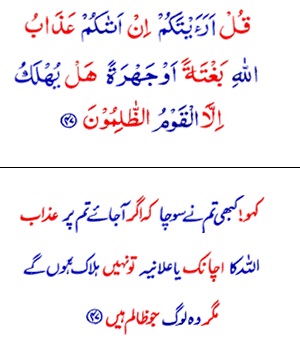 قُلْ اَرَءَيْتَكُمْ اِنْ اَتٰىكُمْ عَذَابُ
اللّٰهِ بَغْتَةً اَوْ جَهْرَةً هَلْ يُهْلَكُ
اِلَّا الْقَوْمُ الظّٰلِمُوْنَ ﴿۴۷﴾
کہو! کبھی تم نے سوچا کہ اگر آجائے تم پر عذاب
اللہ کا اچانک یا علانیہ تو نہیں ہلاک ہوں گے
مگر وہ لوگ جو ظالم ہیں ﴿۴۷﴾